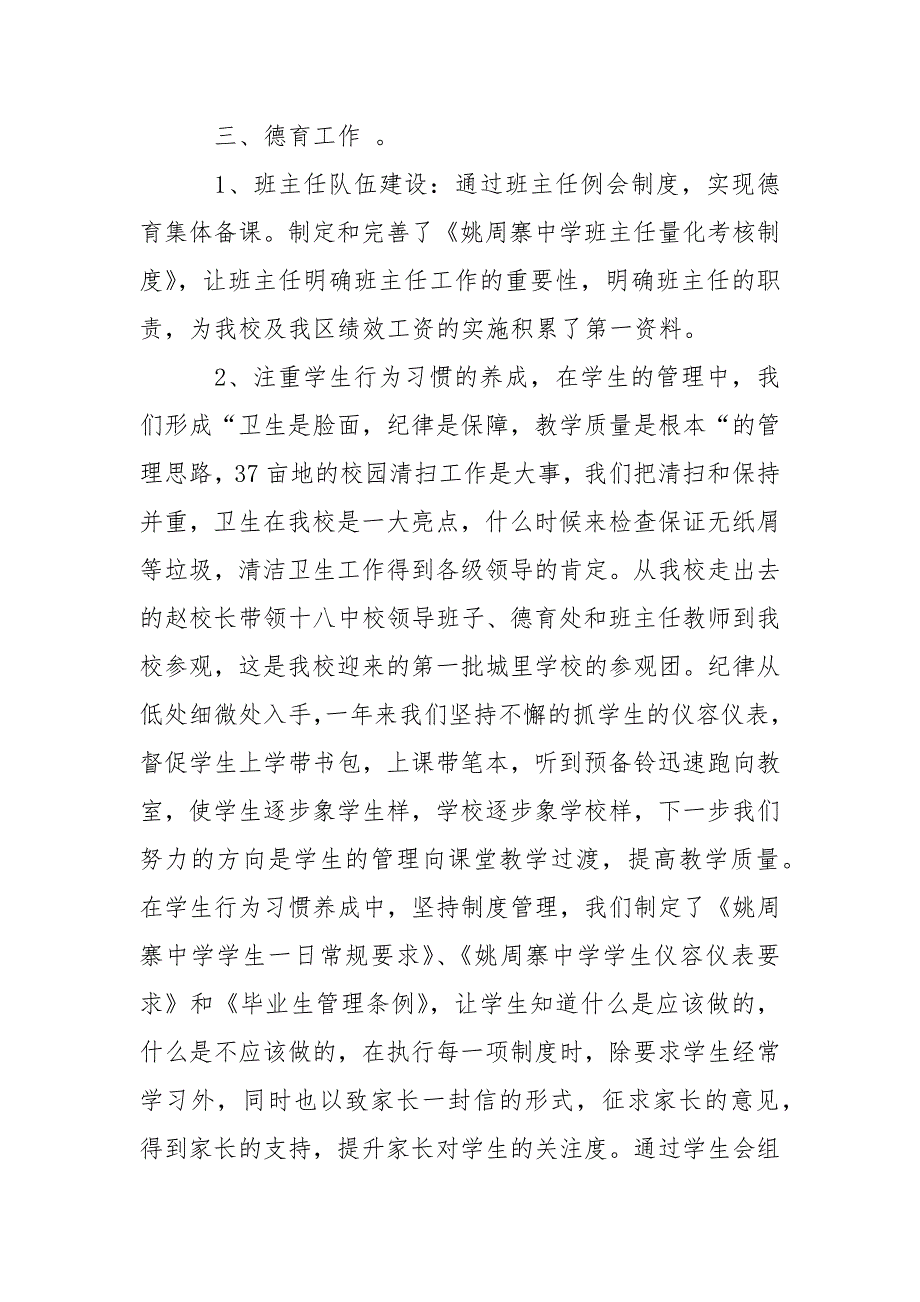 三、德育工作 。
1、班主任队伍建设：通过班主任例会制度，实现德
育集体备课。制定和完善了《姚周寨中学班主任量化考核制
度》，让班主任明确班主任工作的重要性，明确班主任的职
责，为我校及我区绩效工资的实施积累了第一资料。
2、注重学生行为习惯的养成，在学生的管理中，我
们形成“卫生是脸面，纪律是保障，教学质量是根本“的管
理思路，37 亩地的校园清扫工作是大事，我们把清扫和保持
并重，卫生在我校是一大亮点，什么时候来检查保证无纸屑
等垃圾，清洁卫生工作得到各级领导的肯定。从我校走出去
的赵校长带领十八中校领导班子、德育处和班主任教师到我
校参观，这是我校迎来的第一批城里学校的参观团。纪律从
低处细微处入手，一年来我们坚持不懈的抓学生的仪容仪表，
督促学生上学带书包，上课带笔本，听到预备铃迅速跑向教
室，使学生逐步象学生样，学校逐步象学校样，下一步我们
努力的方向是学生的管理向课堂教学过渡，提高教学质量。
在学生行为习惯养成中，坚持制度管理，我们制定了《姚周
寨中学学生一日常规要求》、《姚周寨中学学生仪容仪表要
求》和《毕业生管理条例》，让学生知道什么是应该做的，
什么是不应该做的，在执行每一项制度时，除要求学生经常
学习外，同时也以致家长一封信的形式，征求家长的意见，
得到家长的支持，提升家长对学生的关注度。通过学生会组